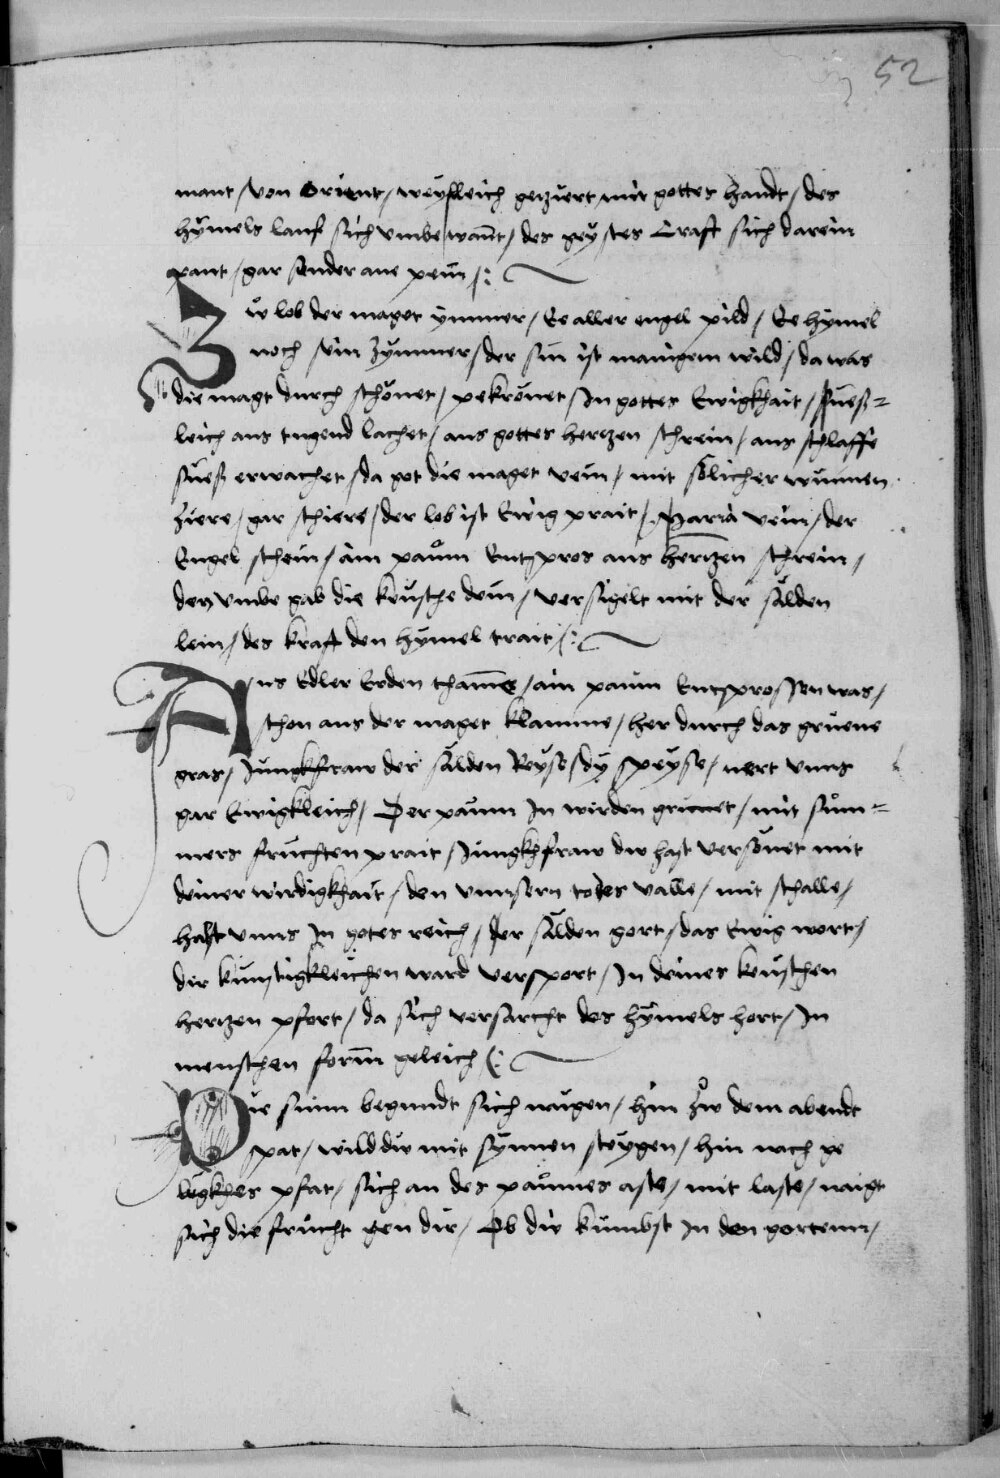 52
mant / von Orient / weysleich geziert mit gottes handt / des
hÿmels lauf sich vmbe want / des geÿstes Craft sich darein
pant / gar sunder ane pein /:
Zw lob der maget ymmer / Ee aller engel pild / Ee hÿmel
noch sein zÿmmer / der sin ist manigem wild / da was
die magt durch schönet / pekrönet / In gottes Ewigkhait / sueß=
leich aus tugend lachet / aus gottes hertzen schrein / aus schlaffe
sueß erwachet / da got die maget vein / mit sölicher wunnen
ziere / gar schiere / der lob ist Ewig prait / Maria vein / der
Engel schein / ain paum Entspros aus hertzen schrein /
den vmbe gab die keusche dein / versigelt mit der sälden
lein / des kraft den hÿmel trait /:
Aus Edler Erden thamme / ain paum Entsprossen was /
schon aus der maget klamme / her durch das gruene
gras / Jungkfraw der sälden Reyse / dÿ speÿse / nert vnns
gar Ewigkleich / Der paum In wirden grunet / mit sum=
mers fruchten prait / Jungkhfraw dw hast versönet mit
deiner wirdigkhait / den vnnsern todes valle / mit schalle /
halt vnns In gotes reich / der sälden gort / das Ewig wort /
dir kunstigkleichen ward versport / In deines keuschen
hertzen pfort / da sich versarcht des hÿmels hort / In
menschen form geleich /:
Die sunn begundt sich naigen / hin zw dem abendt
spat / wild dw mit sÿnnen steÿgen / hin nach ge
lügkhes pfat / sich an des paumes aste / mit laste / naigt
sich die frucht gen dir / Ob dir kumbst In den gorten /